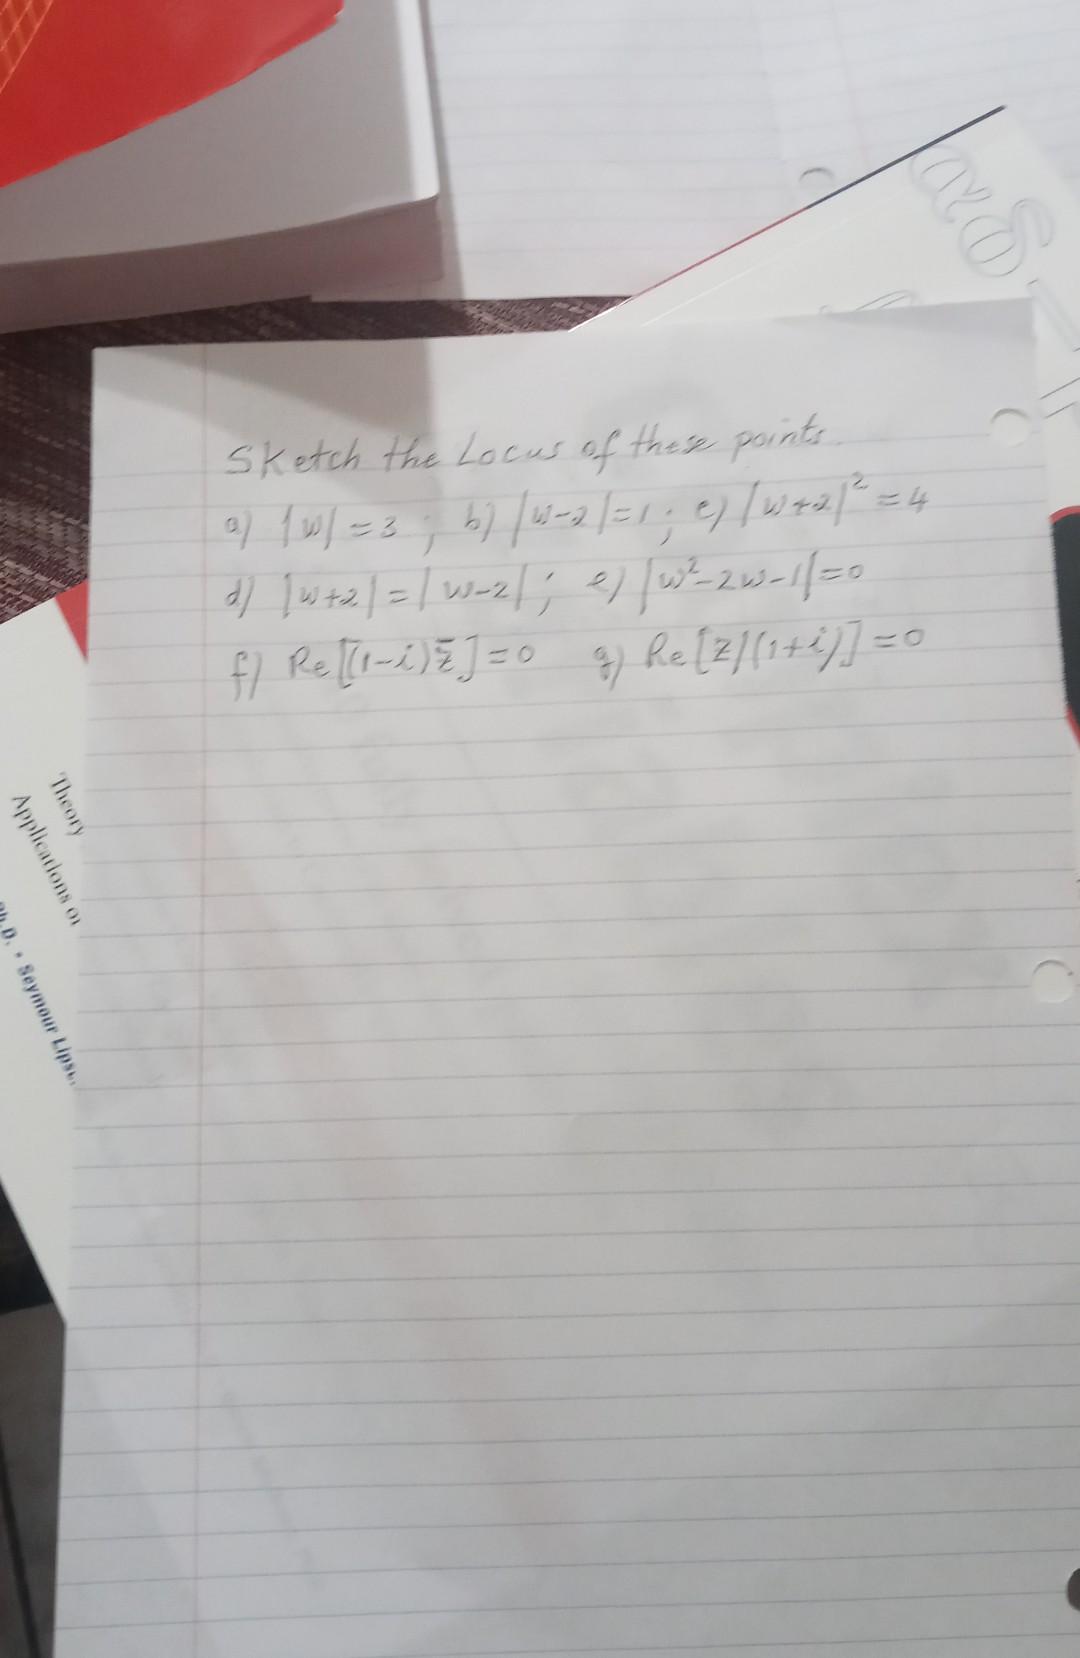 Sketch the Locus of these points.
a) |w| = 3 ; b) |w-2|=1 ; c) |w+2|² = 4
d) |w+2| = |w-2| ; e) |w²-2w-1|=0
f) Re[(1-i)z̅]=0 g) Re[z/(1+i)]=0
Theory
Applications of
Ph.D. • Seymour Lips